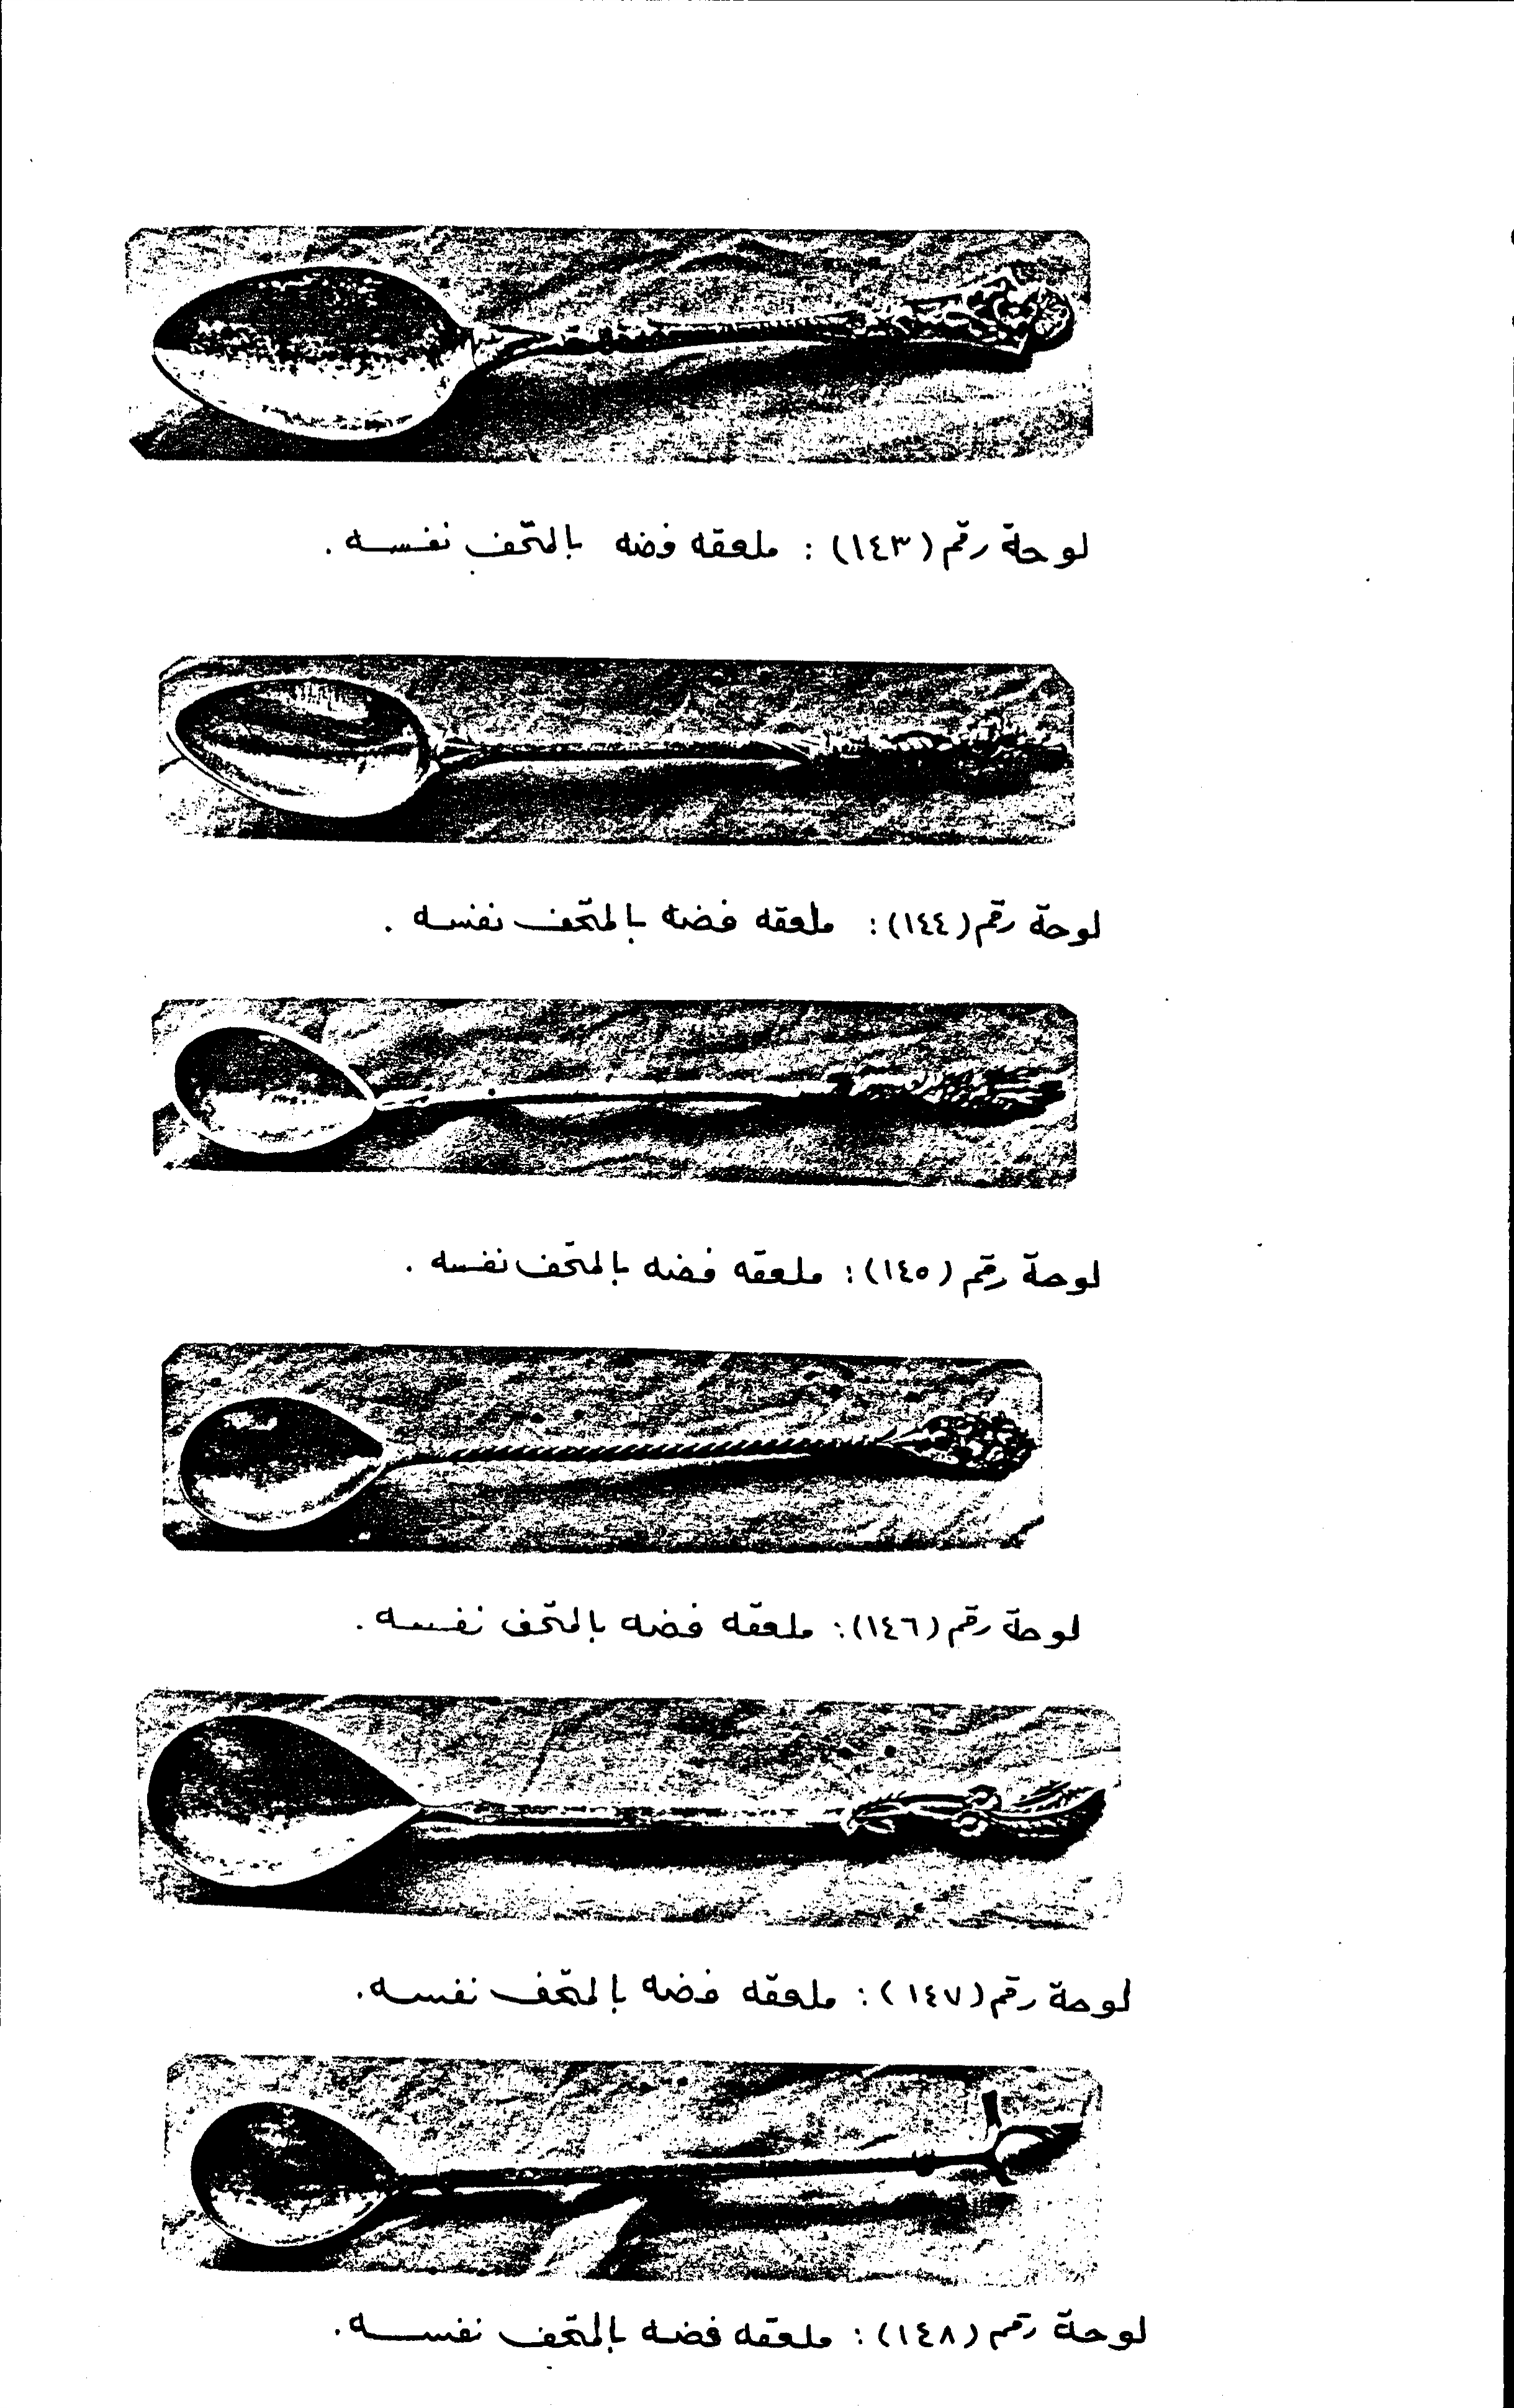 لوحة رقم (١٤٣) : ملعقه فضه بالمتحف نفسه .
لوحة رقم (١٤٤) : ملعقه فضه بالمتحف نفسه .
لوحة رقم (١٤٥) : ملعقه فضه بالمتحف نفسه .
لوحة رقم (١٤٦) : ملعقه فضه بالمتحف نفسه .
لوحة رقم (١٤٧) : ملعقه فضه بالمتحف نفسه .
لوحة رقم (١٤٨) : ملعقه فضه بالمتحف نفسه .